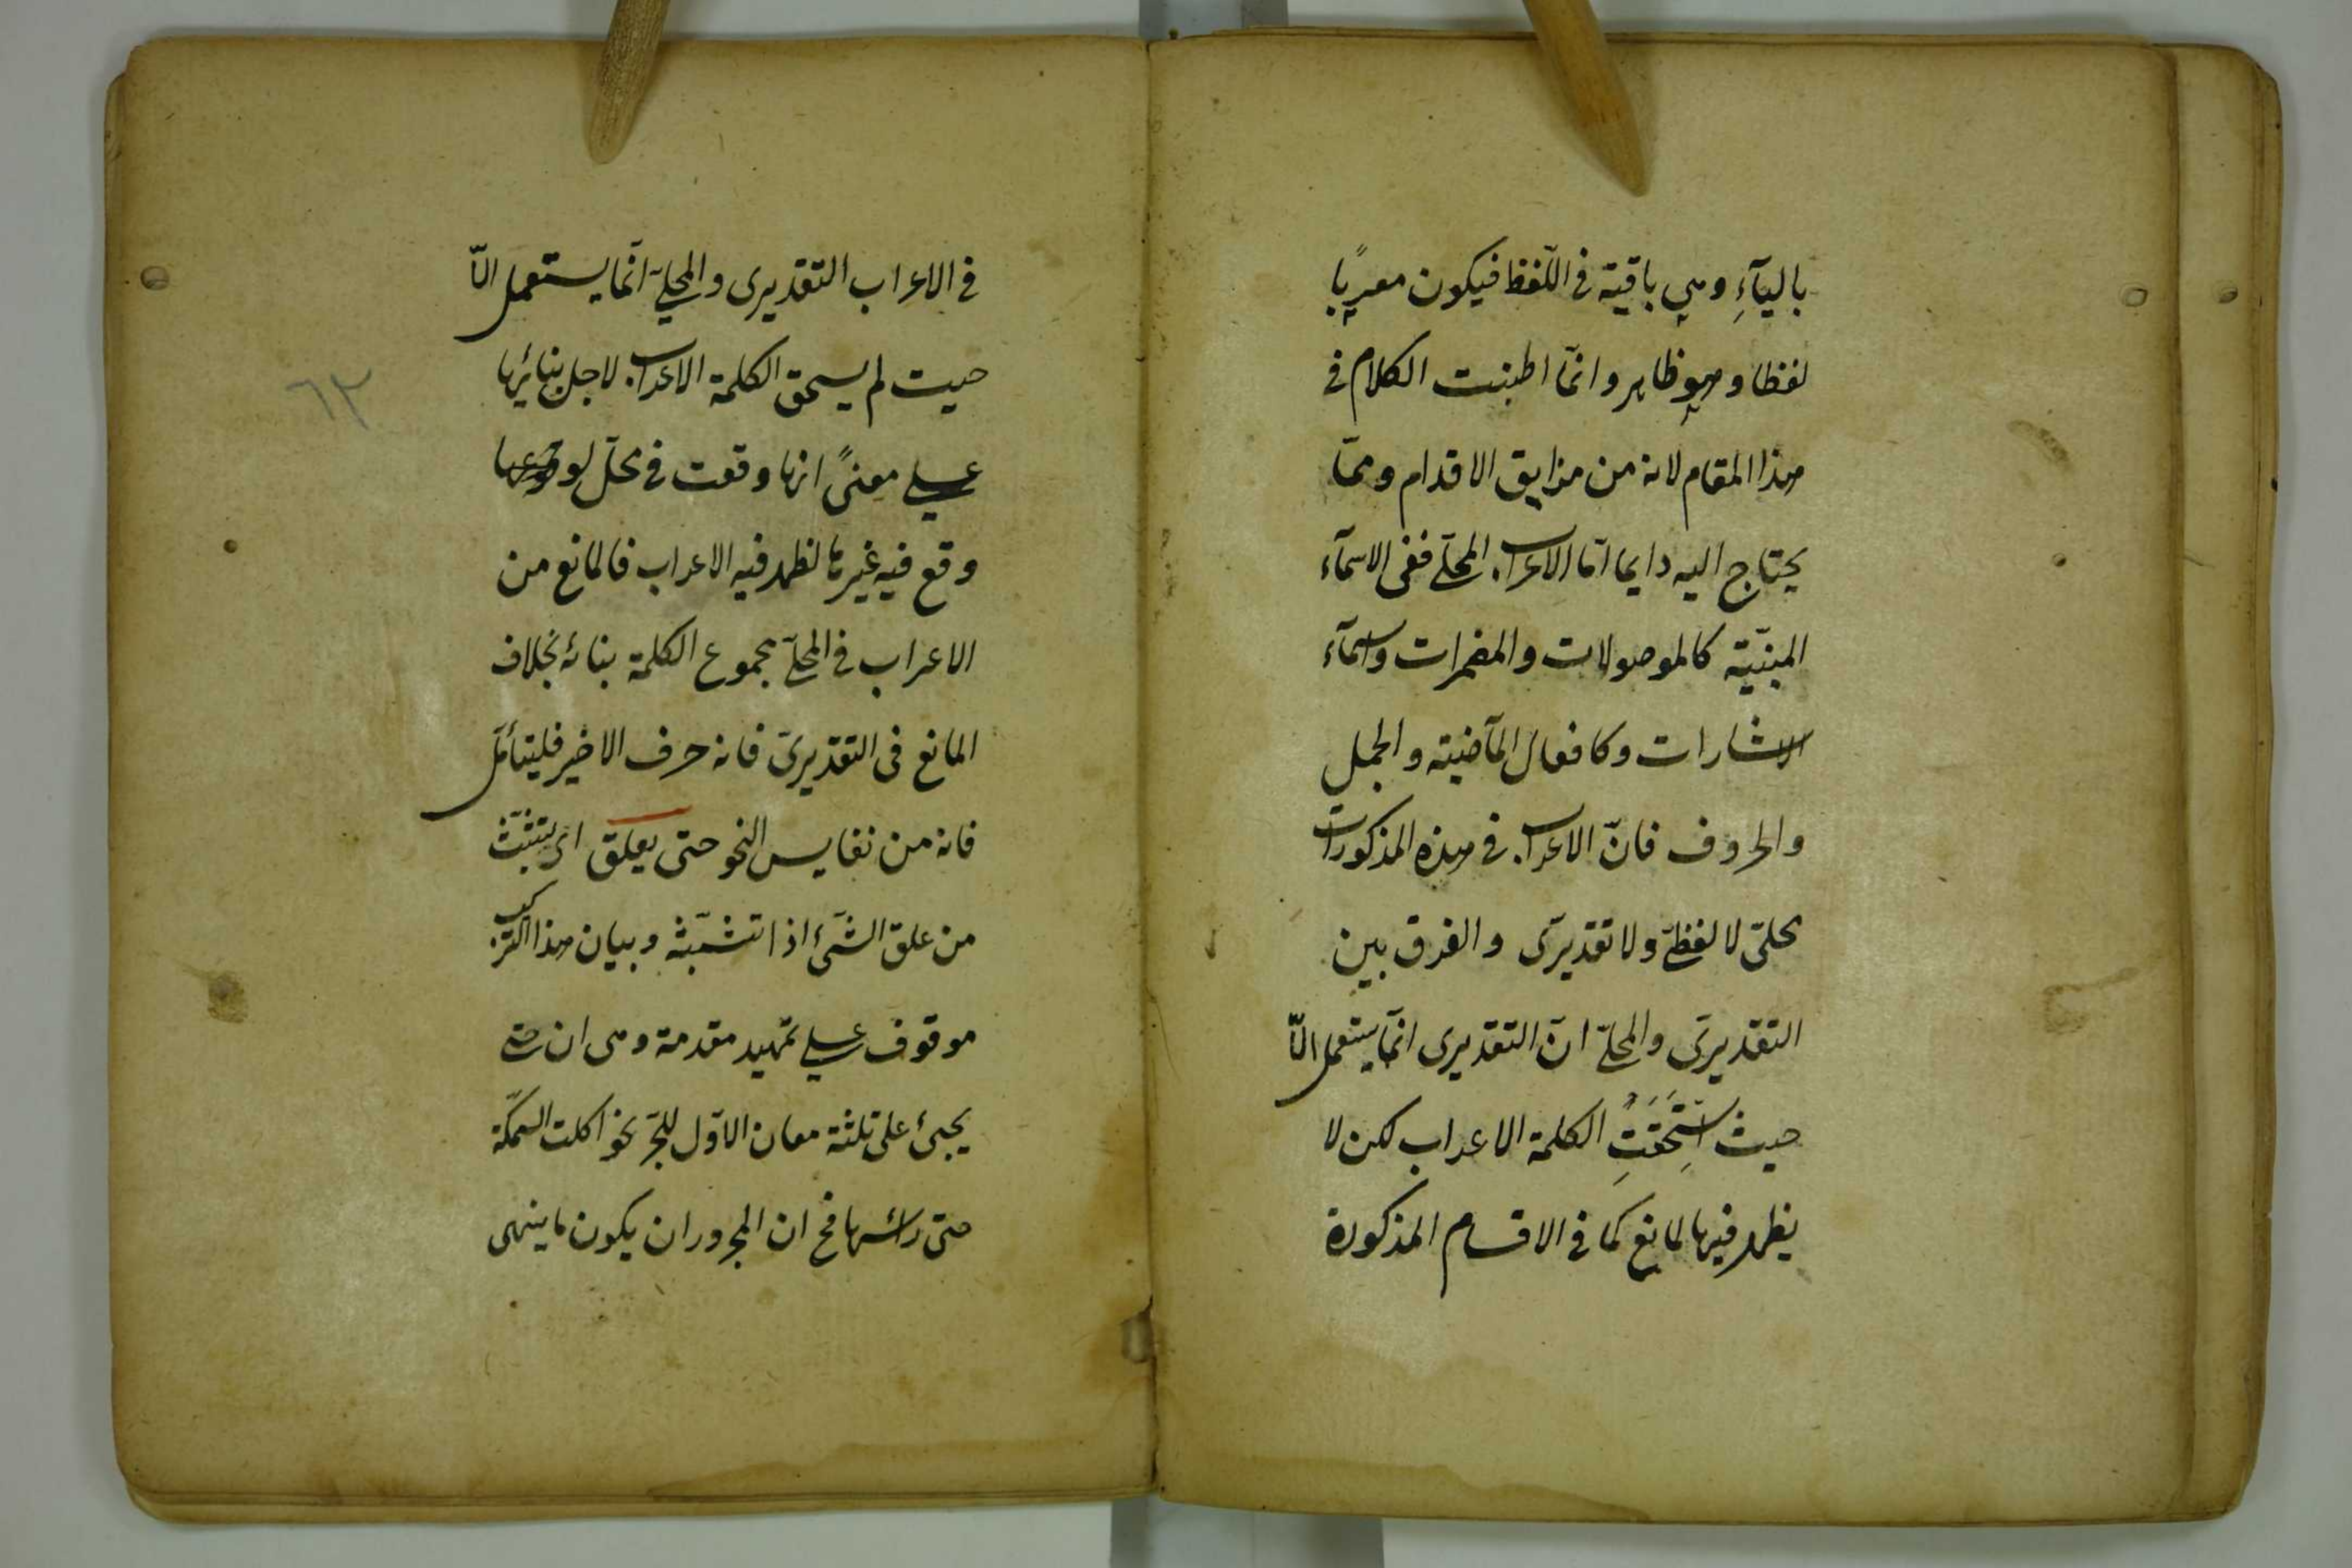 باليآءِ وهي باقية في اللّفظ فيكون معربًا
لفظا وهو ظاهر وانّما اطبنت الكلام في
هذا المقام لانه من مزايق الاقدام وممّا
يحتاج اليه دايما امّا الاعراب المحلّي ففى الاسمآء
المبنيّة كالموصولات والمضمرات واسمآء
الاشارات وكافعال المآضية والجمل
والحروف فانّ الاعراب في هذه المذكورات
محلىّ لا لفظيّ ولا تقديرىّ والفرق بين
التقديرىّ والمحلّي انّ التقديرى انّما يستعمل الّا
حيث استَحَقَّتِ الكلمة الاعراب لكن لا
يظهر فيها لمانع كما في الاقسام المذكورة
في الاعراب التقديرى والمحليّ انّما يستعمل الّا
حيث لم يسحق الكلمة الاعراب لاجل بنائها
على معنىً انها وقعت في محلّ لو
وقع فيه غيرها لظهر فيه الاعراب فالمانع من
الاعراب في المحلّي مجموع الكلمة بنائه بخلاف
المانع فى التقديرىّ فانه حرف الاخير فليتأمّل
فانه من نفايس النحو حتى يعلق اى يتشبّث
من علق الشئ اذا تشبّثه وبيان هذا التركيب
موقوف على تمهيد مقدمة وهى ان حتى
يجيئ على ثلثة معان الاوّل للجرّ نحو اكلت السمكة
حتى رائسها فح ان المجرور ان يكون ما ينهى
٦٢